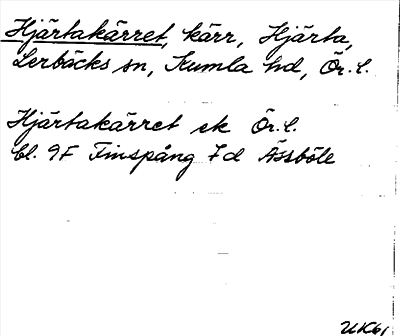 Hjärtakärret, kärr, Hjärta,
Lerbäcks sn, Kumla hd, Ör. l.
Hjärtakärret ek Ör. l.
bl. 9F Finspång 7d Åssböle
UK61